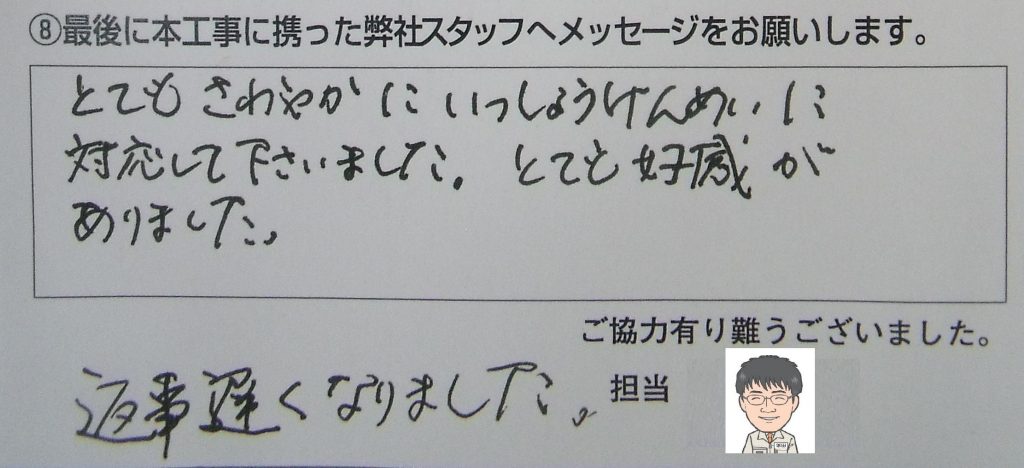 ⑧最後に本工事に携った弊社スタッフへメッセージをお願いします。
とてもさわやかにいっしょうけんめいに
対応して下さいました。とても好感が
ありました。
ご協力有り難うございました。
返事遅くなりました。
担当